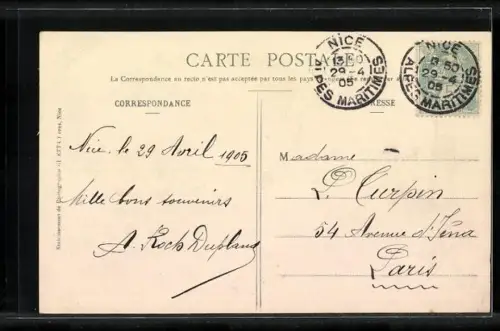 CARTE POSTALE
La Correspondance au recto n'est pas acceptée par tous les pays
CORRESPONDANCE
ADRESSE
NICE
13 50
29-4
05
ALPES MARITIMES
NICE
13 50
29-4
05
ALPES MARITIMES
Nice, le 29 Avril 1905
Mille bons souvenirs
A. Koch
Madame
L. Curpin
54 Avenue d'Iéna
Paris